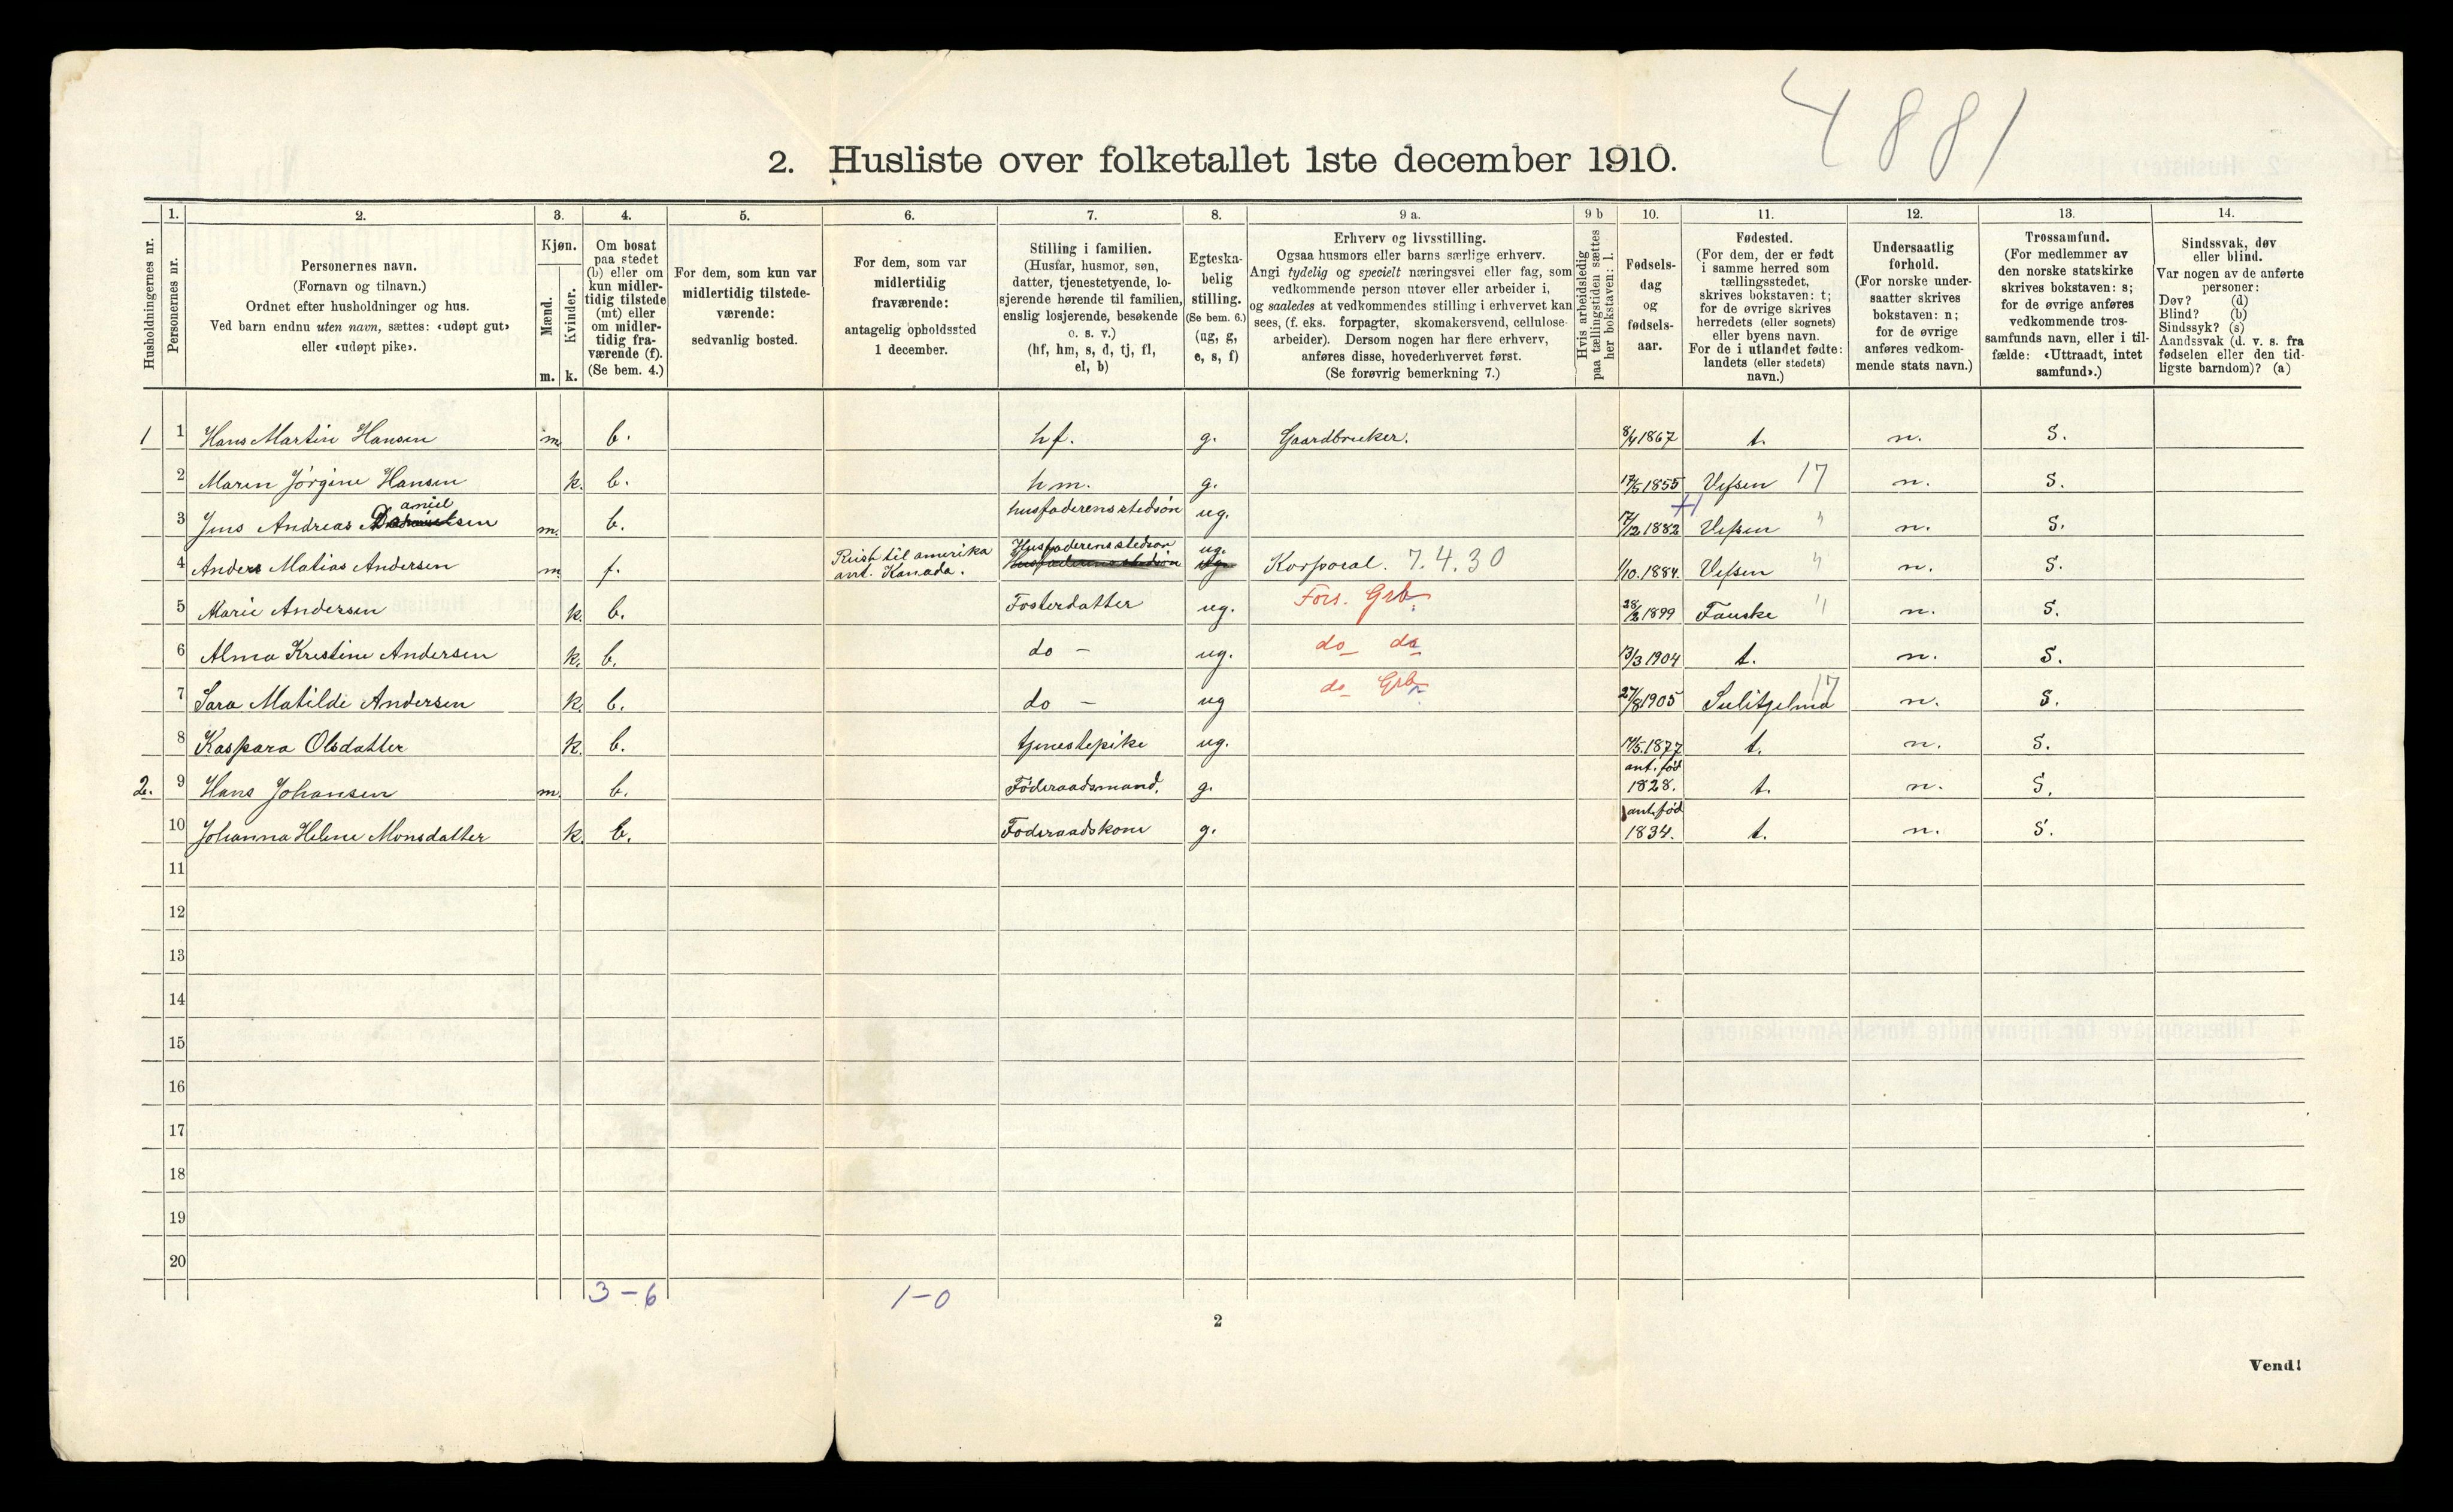 4881
2. Husliste over folketallet 1ste december 1910.
Husholdningernes nr.
1.
Personernes nr.
2.
Personernes navn.
(Fornavn og tilnavn.)
Ordnet efter husholdninger og hus.
Ved barn endnu uten navn, sættes: «udøpt gut»
eller «udøpt pike».
3.
Kjøn.
Mænd.
Kvinder.
m. k.
4.
Om bosat
paa stedet
(b) eller om
kun midler-
tidig tilstede
(mt) eller
om midler-
tidig fra-
værende (f).
(Se bem. 4.)
5.
For dem, som kun var
midlertidig tilstede-
værende:
sedvanlig bosted.
6.
For dem, som var
midlertidig
fraværende:
antagelig opholdssted
1 december.
7.
Stilling i familien.
(Husfar, husmor, søn,
datter, tjenestetyende, lo-
sjerende hørende til familien,
enslig losjerende, besøkende
o. s. v.)
(hf, hm, s, d, tj, fl,
el, b)
8.
Egteska-
belig
stilling.
(Se bem. 6.)
(ug, g,
e, s, f)
9 a.
Erhverv og livsstilling.
Ogsaa husmors eller barns særlige erhverv.
Angi tydelig og specielt næringsvei eller fag, som
vedkommende person utøver eller arbeider i,
og saaledes at vedkommendes stilling i erhvervet kan
sees, (f. eks. forpagter, skomakersvend, cellulose-
arbeider). Dersom nogen har flere erhverv,
anføres disse, hovederhvervet først.
(Se forøvrig bemerkning 7.)
9 b
Hvis arbeidsledig
paa tællingstiden sættes
her bokstaven: l.
10.
Fødsels-
dag
og
fødsels-
aar.
11.
Fødested.
(For dem, der er født
i samme herred som
tællingsstedet,
skrives bokstaven: t;
for de øvrige skrives
herredets (eller sognets)
eller byens navn.
For de i utlandet fødte:
landets (eller stedets)
navn.)
12.
Undersaatlig
forhold.
(For norske under-
saatter skrives
bokstaven: n;
for de øvrige
anføres vedkom-
mende stats navn.)
13.
Trossamfund.
(For medlemmer av
den norske statskirke
skrives bokstaven: s;
for de øvrige anføres
vedkommende tros-
samfunds navn, eller i til-
fælde: «Uttraadt, intet
samfund».)
14.
Sindssvak, døv
eller blind.
Var nogen av de anførte
personer:
Døv? (d)
Blind? (b)
Sindssyk? (s)
Aandssvak (d. v. s. fra
fødselen eller den tid-
ligste barndom)? (a)
1 1 Hans Martin Hansen m. b. hf. g. Gaardbruker. 8/4 1867 t. n. S.
2 Maren Jörgine Hansen k. b. hm. g. 17/5 1855 Vefsen 17 n. S.
3 Jens Andreas Danielsen m. b. husfaderens stedsön ug. 17/12 1882 Vefsen " n. S.
4 Anders Matias Andersen m f. Reist til amerika ant. Kanada. Husfaderens stedsøn ug. Korporal. 7.4.30 1/10.1884. Vefsen " n. S.
5 Marie Andersen k. b. Fosterdatter ug. Fors. Grb. 28/2 1899 Fauske " n. S.
6 Alma Kristine Andersen k. b. do - ug. do do 13/3 1904 t. n. S.
7 Sara Matilde Andersen k. b. do - ug do Grb 27/8 1905 Sulitjelma 17 n. S.
8 Kaspara Olsdatter k. b. tjenestepike ug. 14/5.1877 t. n. S.
2. 9 Hans Johansen m. b. Föderaadsmand. g. ant. fød 1828. t. n. S.
10 Johanna Helene Monsdatter k. b. Föderaadskone g. ant. fød 1834. t. n. S.
11
12
13
14
15
16
17
18
19
20
3-6 1-0
2
Vend!